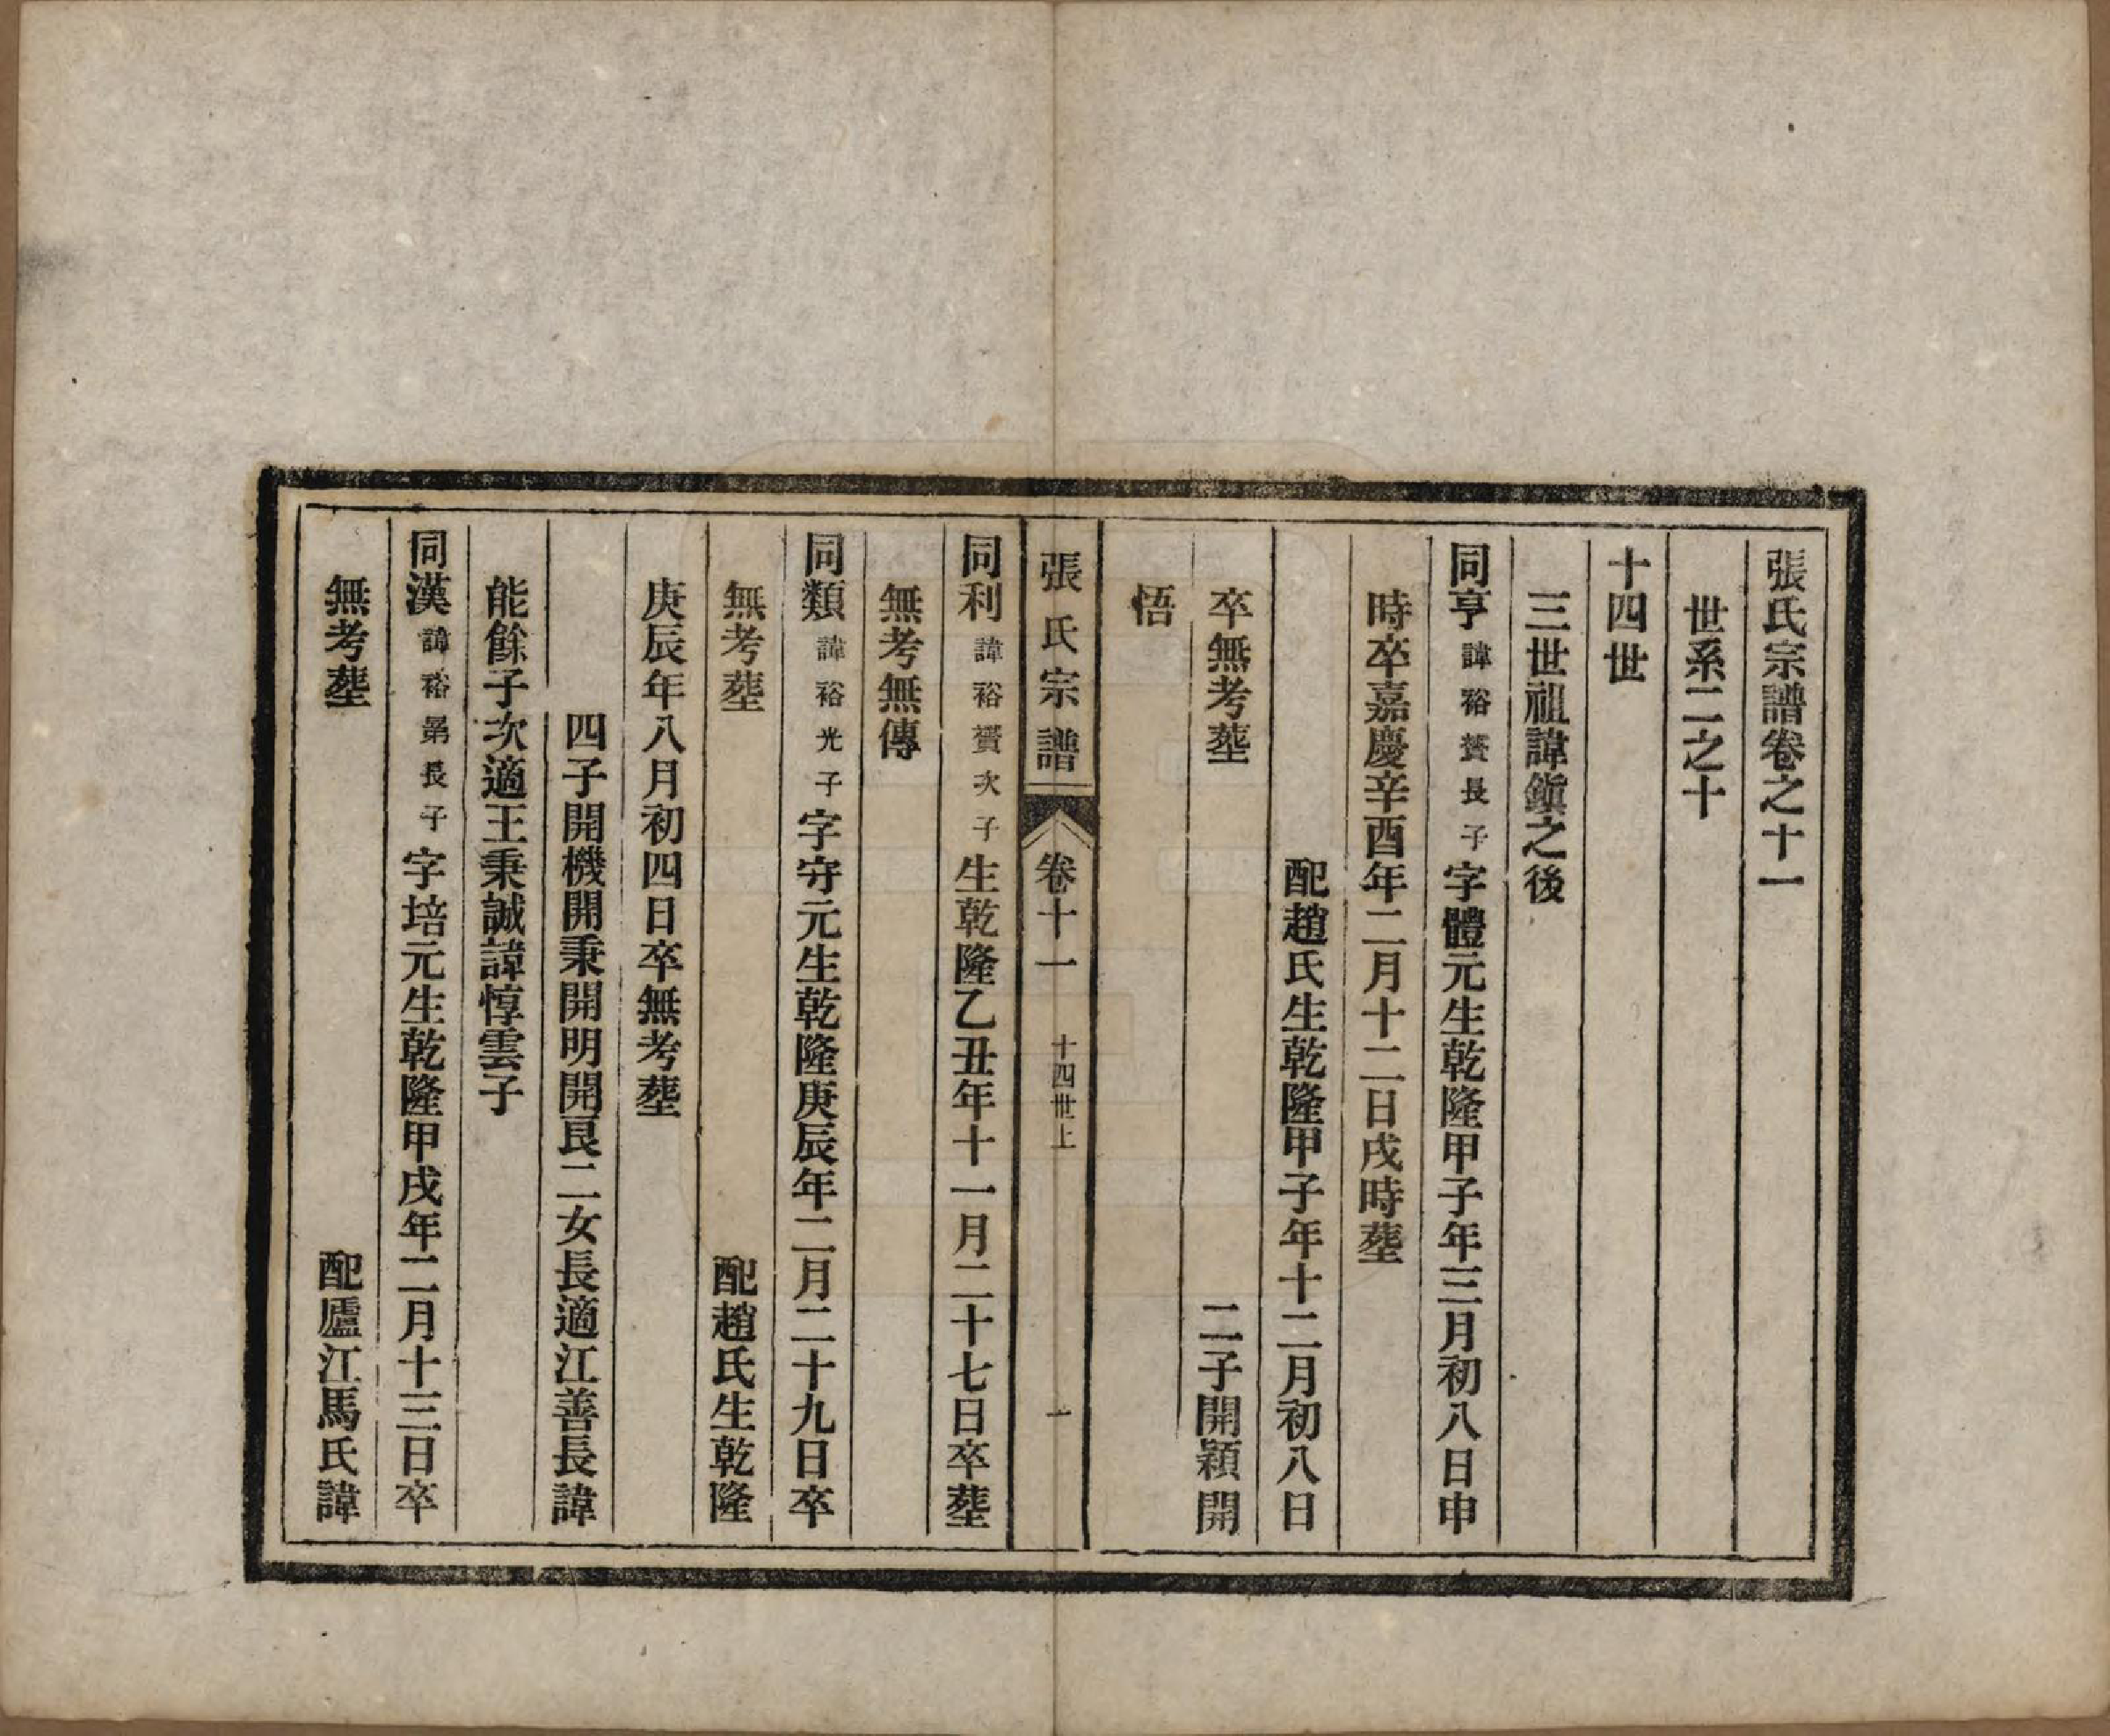 張氏宗譜卷之十一
世系二之十
十四世
三世祖諱鎭之後
同亨諱裕贇長子字體元生乾隆甲子年三月初八日申
時卒嘉慶辛酉年二月十二日戌時塟
配趙氏生乾隆甲子年十二月初八日
卒無考塟 二子開穎開
悟
張氏宗譜 卷十一 十四世上 一
同利諱裕贇次子生乾隆乙丑年十一月二十七日卒塟
無考無傳
同類諱裕光子字守元生乾隆庚辰年二月二十九日卒
無考塟 配趙氏生乾隆
庚辰年八月初四日卒無考塟
四子開機開秉開明開艮二女長適江善長諱
能餘子次適王秉誠諱惇雲子
同漢諱裕第長子字培元生乾隆甲戌年二月十三日卒
無考塟 配廬江馬氏諱